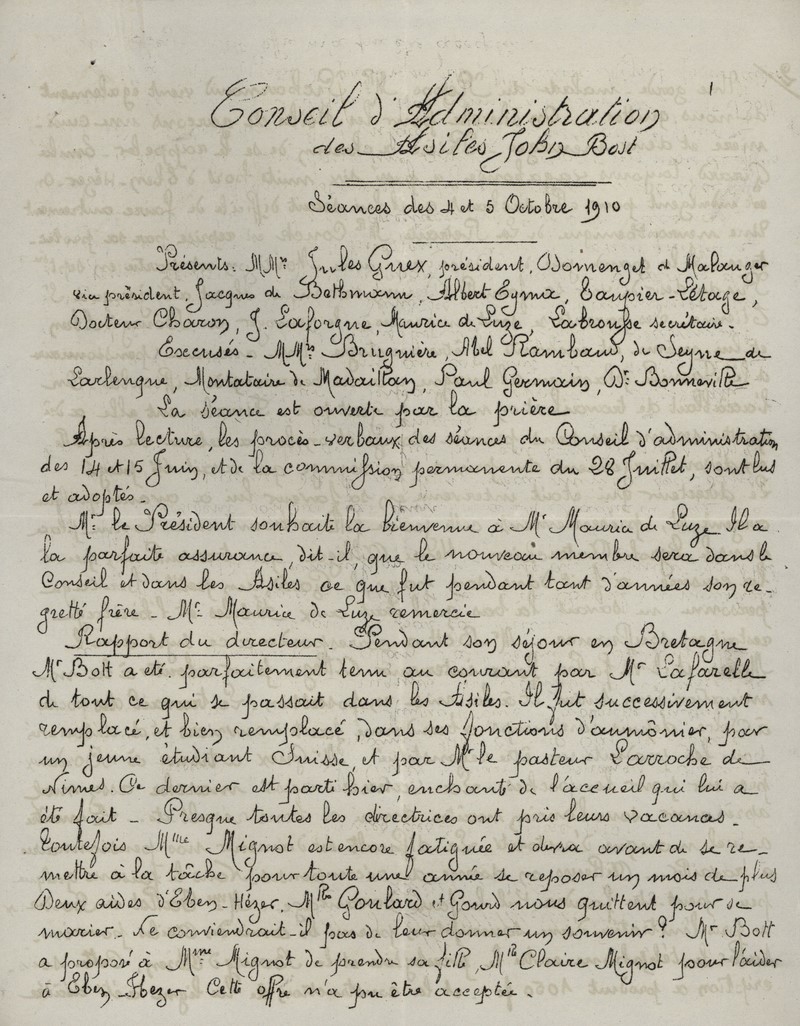 1
Conseil d'Administration
des Asiles John Bost
Séances des 4 et 5 Octobre 1910
Présents. MMrs Jules Guex, président, Domenget et Malanger
vice président, Jacques de Bethmann, Albert Eyma, Taupier-Létage,
Docteur Charon, J. Laforgue, Maurice de Luze, Labrousse secrétaire.
Excusés - MMrs Brugnière, Abel Rambaud, de Seyne de
Larlengue, Montataire de Madaillan, Paul Germain, Dr Bonneville
La séance est ouverte par la prière
Après lecture, les procès-verbaux des séances du Conseil d'administration,
des 14 et 15 Juin, et de la commission permanente du 28 Juillet, sont lus
et adoptés.
Mr. le Président souhaite la bienvenue à Mr Maurice de Luze. Il a
la parfaite assurance, dit-il, que le nouveau membre sera dans le
Conseil et dans les Asiles ce que fut pendant tant d'années son re-
gretté frère - Mr. Maurice de Luze remercie
Rapport du directeur. Pendant son séjour en Bretagne
Mr Bott a été parfaitement tenu au courant par Mr Lafarelle
de tout ce qui se passait dans les Asiles. Il fut successivement
remplacé, et bien remplacé, dans ses fonctions d'aumônier, par
un jeune étudiant Suisse, et par Mr le pasteur Larroche de
Nimes. Ce dernier est parti hier, enchanté de l'accueil qui lui a
été fait - Presque toutes les directrices ont pris leurs vacances.
Toutefois Mme Mignot est encore fatiguée et devra avant de se re-
mettre à la tâche pour toute une année se reposer un mois de plus
Deux aides d'Eben-Hézer, Mlles Goulard et Gourd nous quittent pour se
marier. Ne conviendrait-il pas de leur donner un souvenir? Mr Bott
a proposé à Mme Mignot de prendre sa fille, Mlle Claire Mignot pour l'aider
à Eben-Hezer Cette offre n'a pu être acceptée.